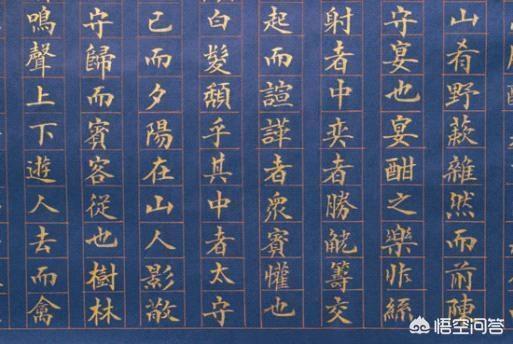 山肴野蔌雜然而前陳
守宴也宴酣之樂非絲
射者中奕者勝觥籌交
起而諠譁者眾賓懽也
白髮頹乎其中者太守
已而夕陽在山人影散
守歸而賓客從也樹林
鳴聲上下遊人去而禽
悟空问答